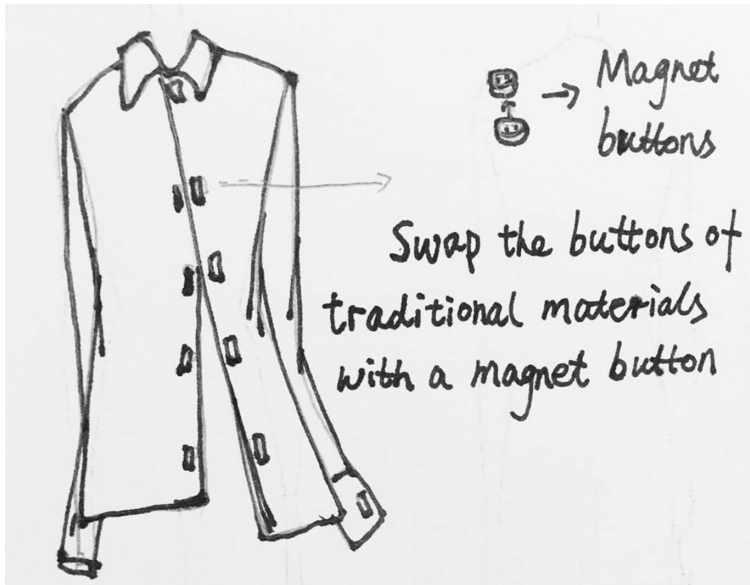 Magnet
buttons
Swap the buttons of
traditional materials
with a magnet button